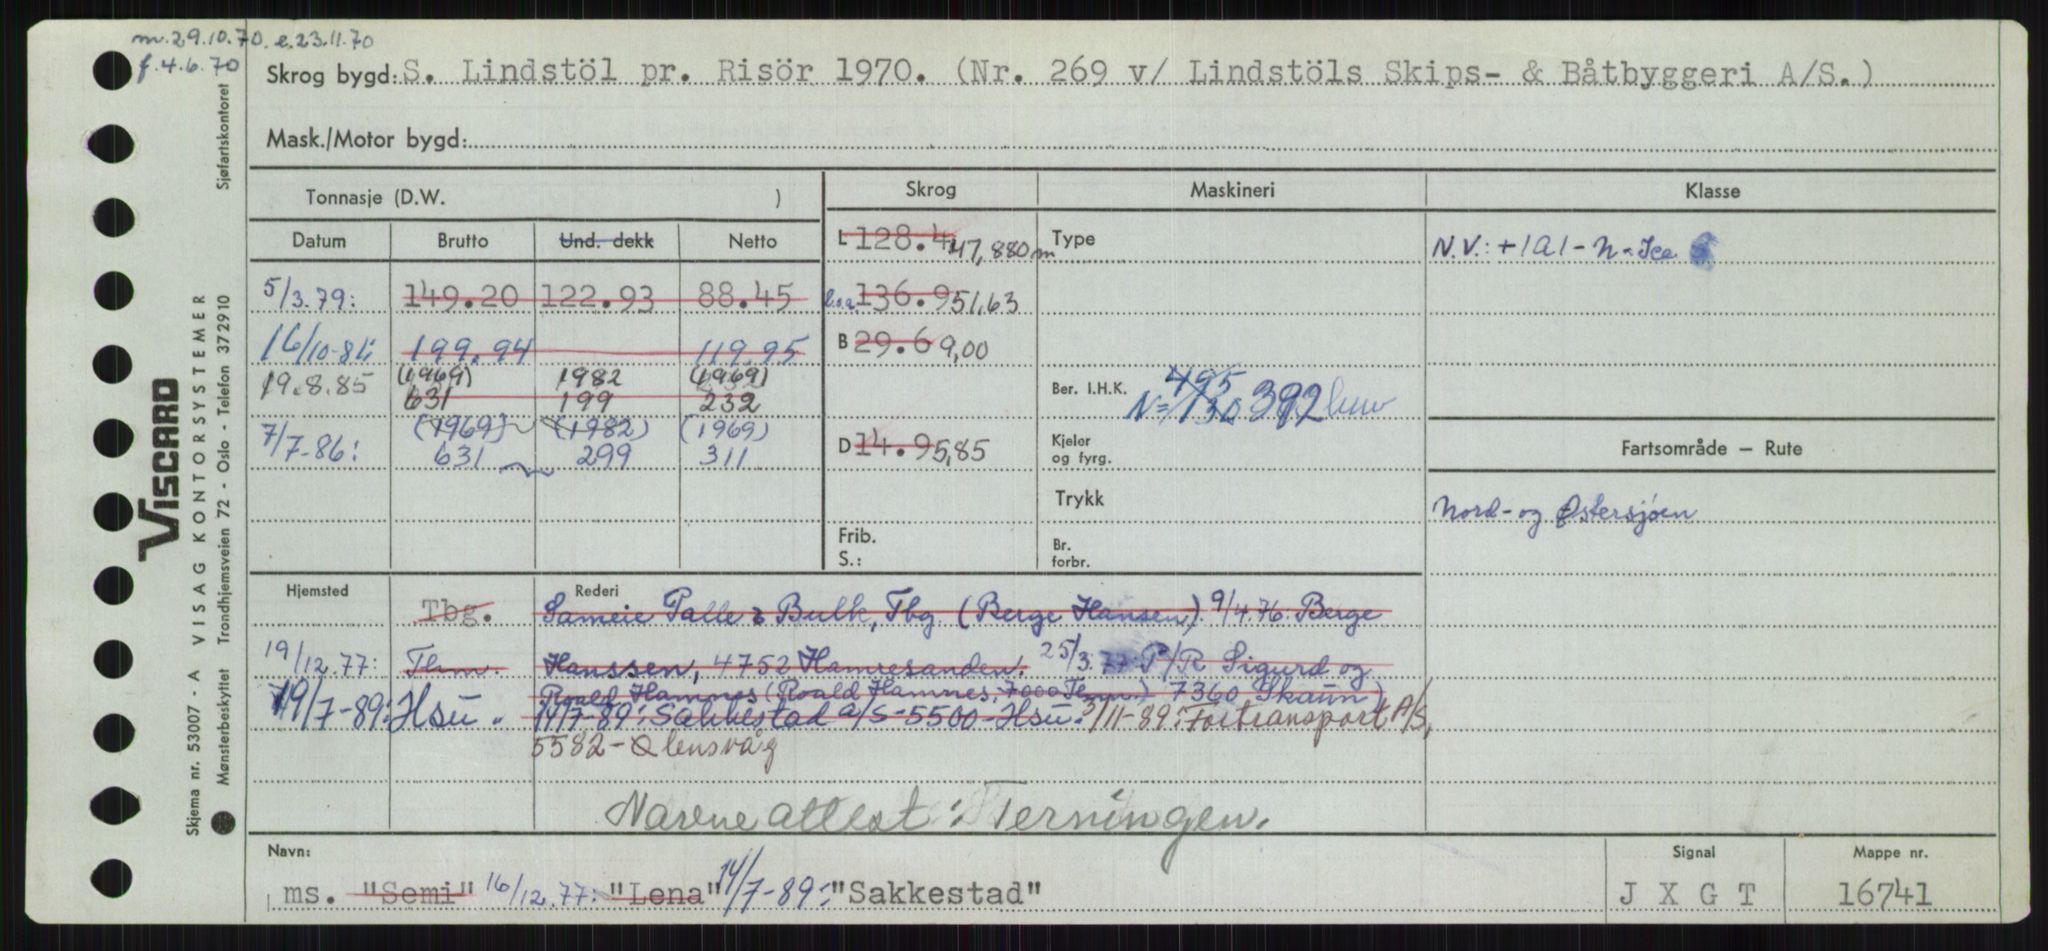 m. 29.10.70. e. 23.11.70
f. 4.6.70
Skrog bygd: S. Lindstöl pr. Risör 1970. (Nr. 269 v/ Lindstöls Skips- & Båtbyggeri A/S.)
Mask./Motor bygd:
Tonnasje (D.W. )
Skrog
Maskineri
Klasse
Datum Brutto Und. dekk Netto
L 128.4 47,880 m
Type
N.V.: +1A1-N-Ice
5/3.79: 149.20 122.93 88.45
l.o.a. 136.9 51,63
16/10-84: 199.94 119.95
B 29.6 9,00
19.8.85 (1969) 1982 (1969)
631 199 232
Ber. I.H.K. 495
N=/130 382 kw
7/7-86: (1969) (1982) (1969)
631 299 311
D 14.9 5,85
Kjeler
og fyrg.
Fartsområde — Rute
Trykk
Nord- og Østersjøen
Frib.
S.:
Br.
forbr.
Hjemsted
Rederi
Tbg. Sameie Palle & Bulk, Tbg. (Berge Hansen). 9/4.76. Berge
19/12.77: Thm. Hanssen, 4752 Hamresanden. 25/3.77: P/R Sigurd og
Roald Hamnes (Roald Hamnes, 7000 Thm.) 7360 Skaun)
14/7-89: Hsu. 14/7-89: Sakkestad A/S-5500-Hsu. 3/11-89: Fortransport A/S,
5582-Ølensvåg
Navneattest: Terningen.
Navn:
Signal
Mappe nr.
ms. "Semi" 16/12.77: "Lena" 14/7-89: "Sakkestad"
J X G T
16741
Sjøfartskontoret
VISCARD
Skjema nr. 53007 - A VISAG KONTORSYSTEMER
Mønsterbeskyttet Trondhjemsveien 72 - Oslo - Telefon 37 29 10